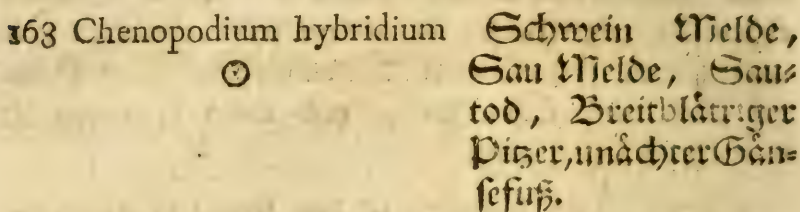 163 Chenopodium hybridium Schwein Melde,
☉ Sau Melde, Sau⸗
tod, Breitblåttriger
Pitzer, unåchter Gån⸗
sefuß.